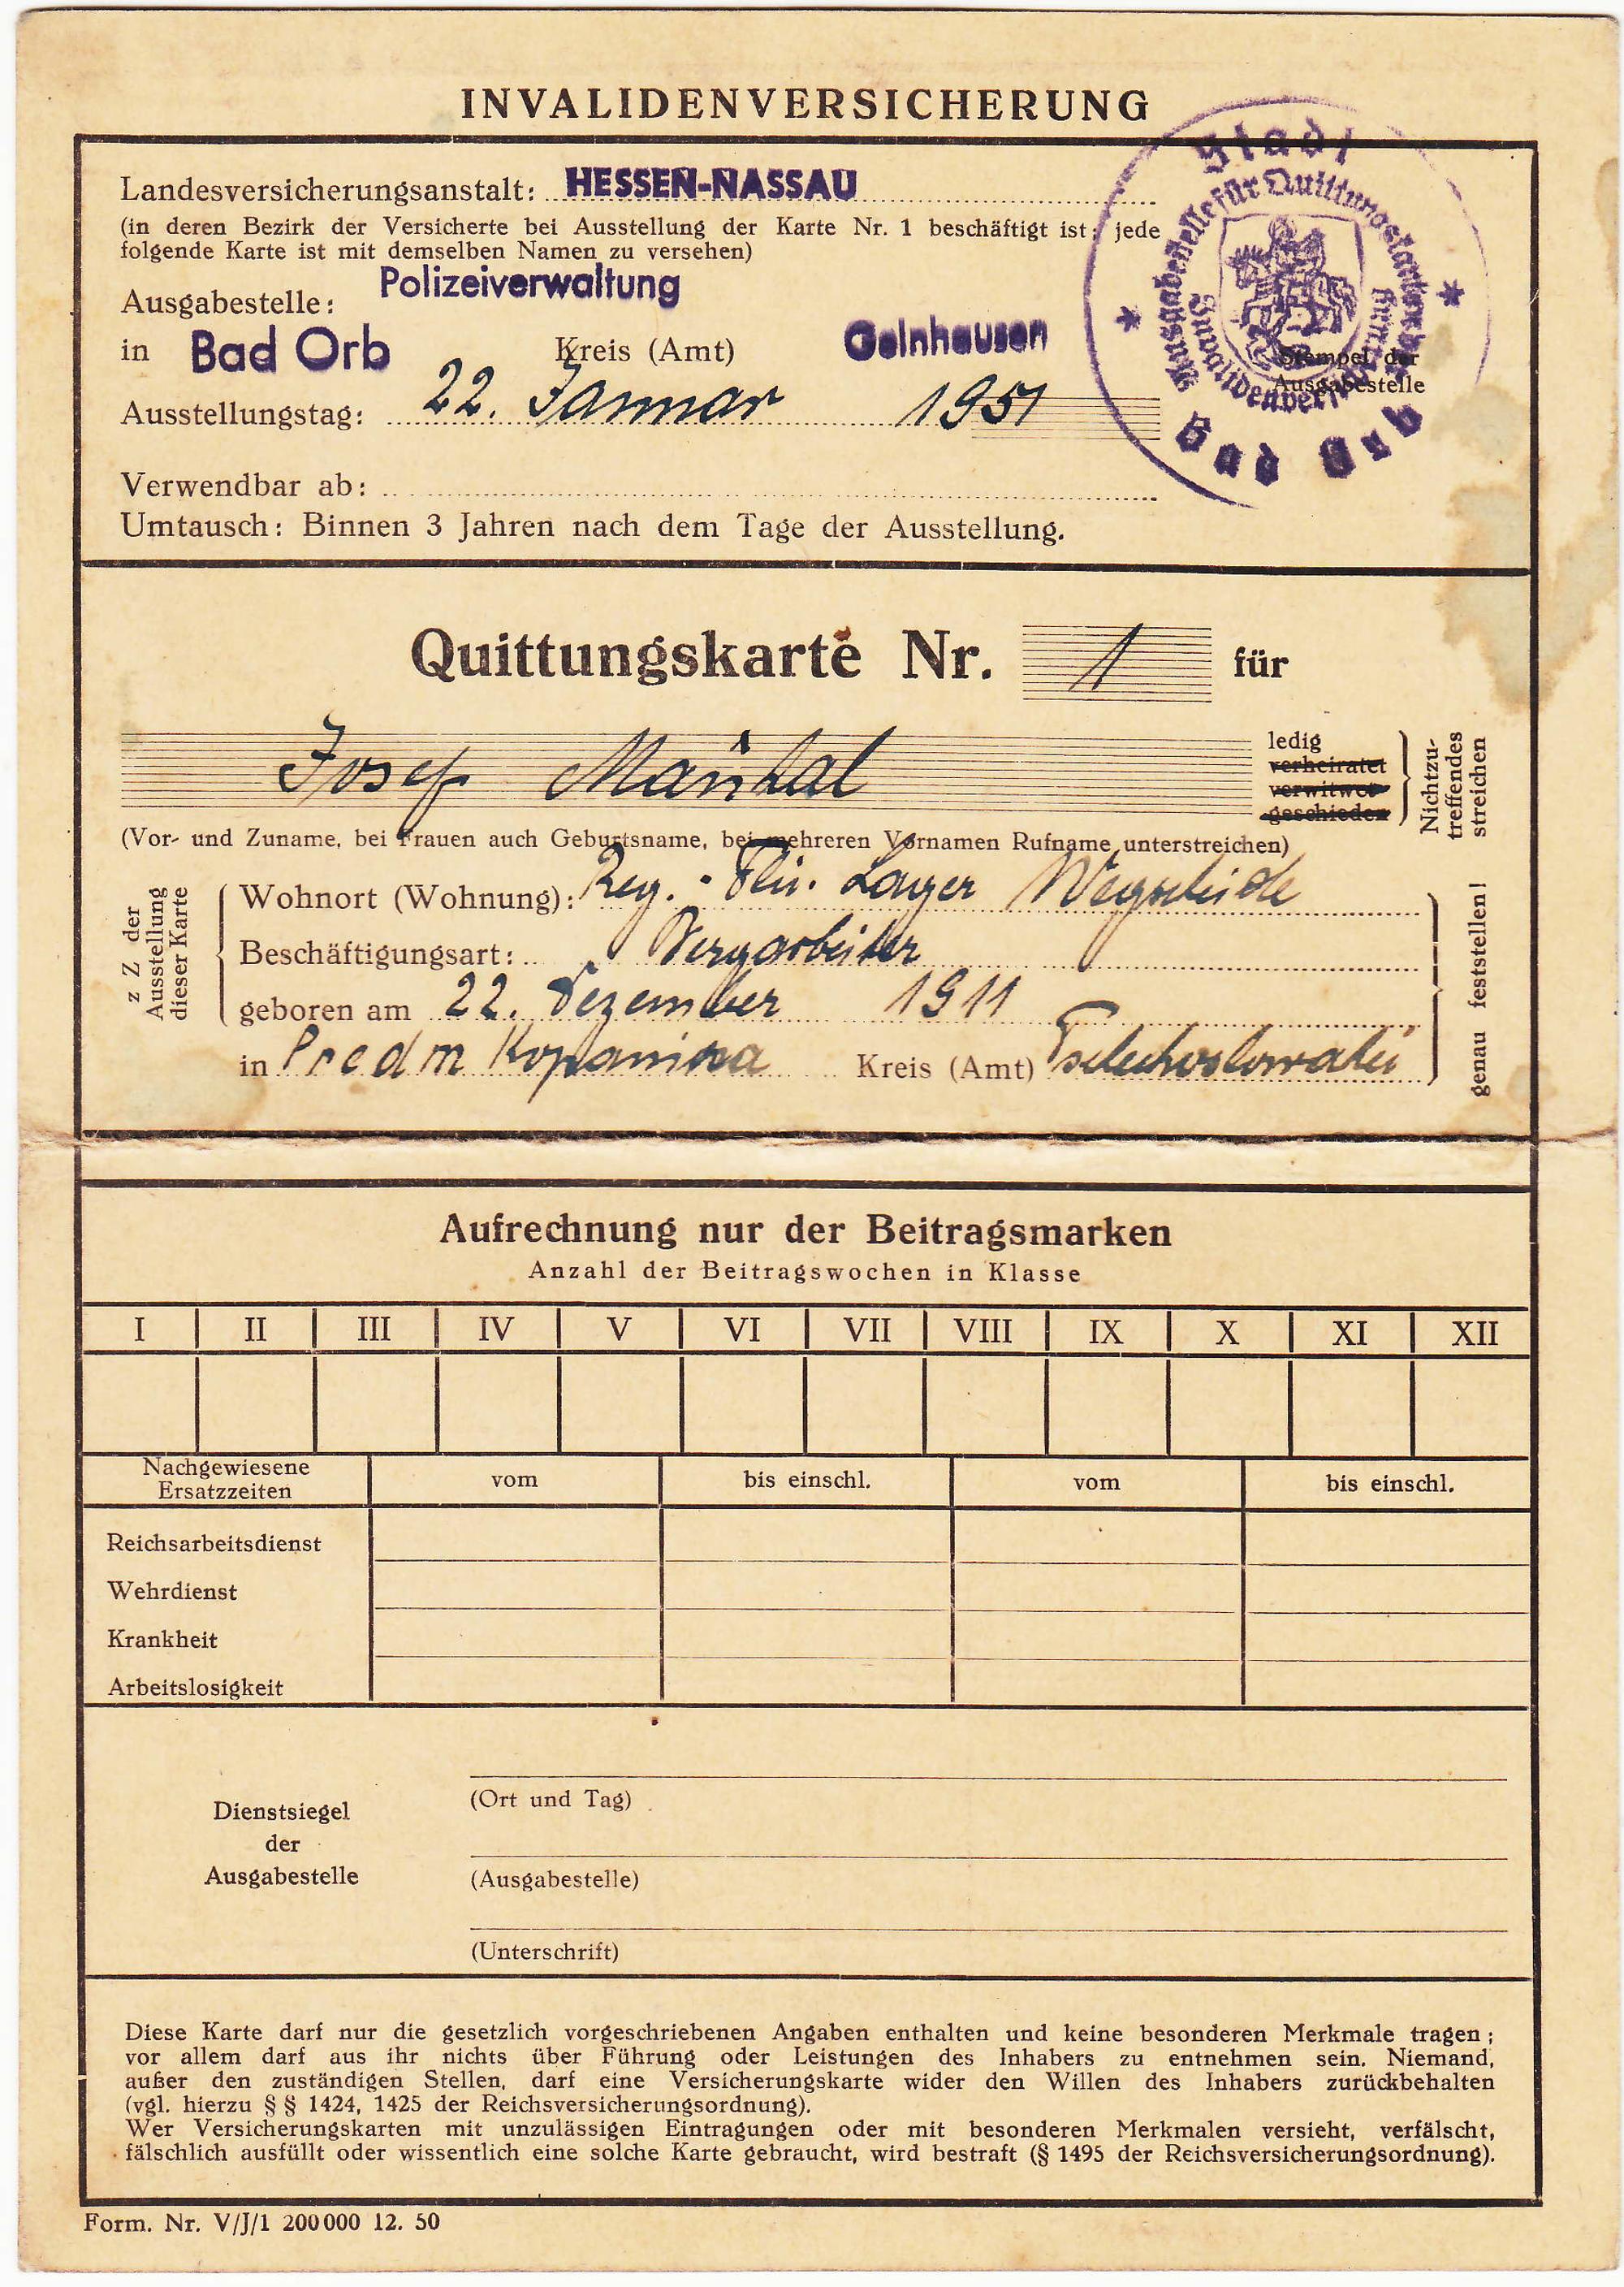 INVALIDENVERSICHERUNG
Landesversicherungsanstalt: HESSEN-NASSAU
(in deren Bezirk der Versicherte bei Ausstellung der Karte Nr. 1 beschäftigt ist; jede
folgende Karte ist mit demselben Namen zu versehen)
Ausgabestelle: Polizeiverwaltung
in Bad Orb Kreis (Amt) Gelnhausen
Ausstellungstag: 22. Januar 1951
Verwendbar ab:
Umtausch: Binnen 3 Jahren nach dem Tage der Ausstellung.
Stadt
Ausgabestelle für Quittungskarten der
Invalidenversicherung
Bad Orb
Stempel der
Ausgabestelle
Quittungskarte Nr. 1 für
Josef
ledig
verheiratet
verwitwet
geschieden
Nichtzu-
treffendes
streichen
(Vor- und Zuname, bei Frauen auch Geburtsname, bei mehreren Vornamen Rufname unterstreichen)
z Z der
Ausstellung
dieser Karte
Wohnort (Wohnung): Reg. - Flü. Lager Wegscheide
Beschäftigungsart: Bergarbeiter
geboren am 22. Dezember 1911
in Predm Kopanina Kreis (Amt) Tschechoslowakei
genau feststellen!
Aufrechnung nur der Beitragsmarken
Anzahl der Beitragswochen in Klasse
I II III IV V VI VII VIII IX X XI XII
Nachgewiesene
Ersatzzeiten
vom bis einschl. vom bis einschl.
Reichsarbeitsdienst
Wehrdienst
Krankheit
Arbeitslosigkeit
Dienstsiegel
der
Ausgabestelle
(Ort und Tag)
(Ausgabestelle)
(Unterschrift)
Diese Karte darf nur die gesetzlich vorgeschriebenen Angaben enthalten und keine besonderen Merkmale tragen;
vor allem darf aus ihr nichts über Führung oder Leistungen des Inhabers zu entnehmen sein. Niemand,
außer den zuständigen Stellen, darf eine Versicherungskarte wider den Willen des Inhabers zurückbehalten
(vgl. hierzu § § 1424, 1425 der Reichsversicherungsordnung).
Wer Versicherungskarten mit unzulässigen Eintragungen oder mit besonderen Merkmalen versieht, verfälscht,
fälschlich ausfüllt oder wissentlich eine solche Karte gebraucht, wird bestraft (§ 1495 der Reichsversicherungsordnung).
Form. Nr. V/J/1 200 000 12. 50